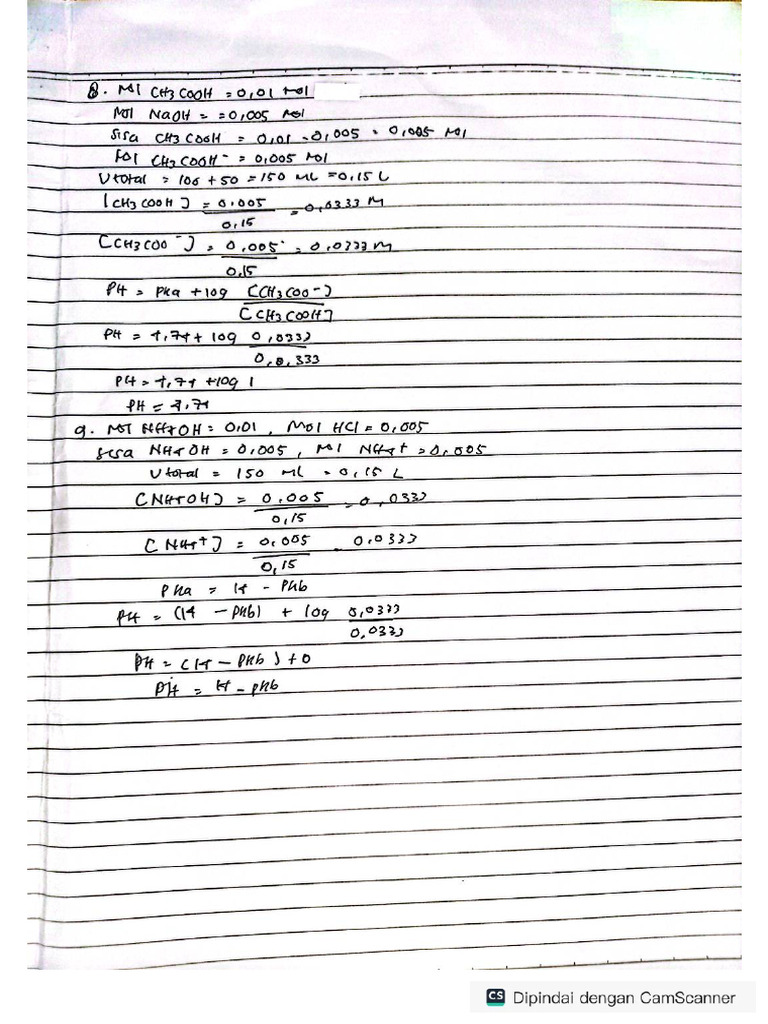 8. Mol CH3COOH = 0,01 mol
Mol NaOH = = 0,005 mol
sisa CH3COOH = 0,01 - 0,005 = 0,005 mol
CH3COOH⁻ = 0,005 mol
V total = 100 + 50 = 150 mL = 0,15 L
[CH3COOH] = 0.005 = 0,0333 M
0,15
[CH3COO⁻] = 0.005 = 0.0333 M
0,15
PH = Pka + log [CH3COO⁻]
[CH3COOH]
PH = 4,74 + log 0,0333
0,0,333
PH = 4,74 + log 1
PH = 4,74
9. Mol NH4OH = 0,01, Mol HCl = 0,005
sisa NH4OH = 0,005, mol NH4+ = 0,005
V total = 150 mL = 0,15 L
[NH4OH] = 0.005 = 0,0333
0,15
[NH4+] = 0.005 = 0.0333
0,15
Pka = 14 - Pkb
PH = (14 - pkb) + log 0,0333
0.0333
PH = (14 - Pkb) + 0
PH = 14 - pkb
CS Dipindai dengan CamScanner